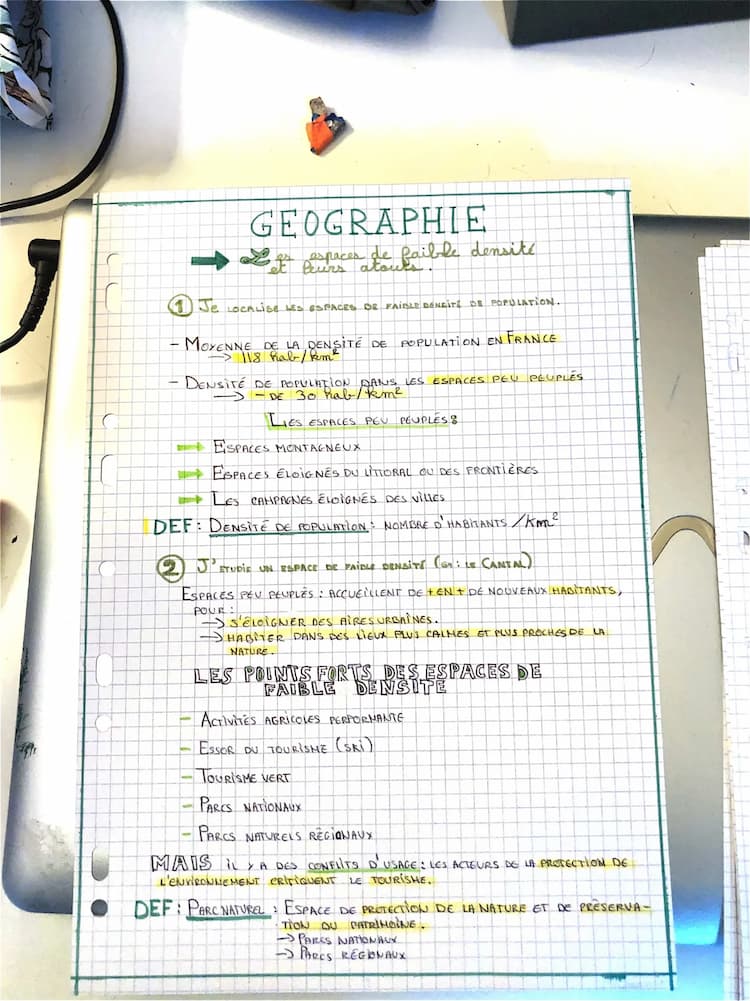 GEOGRAPHIE
→ Les espaces de faible densité
et leurs atouts.
① JE LOCALISE LES ESPACES DE FAIBLE DENSITÉ DE POPULATION.
- MOYENNE DE LA DENSITÉ DE POPULATION EN FRANCE
→ 118 hab/km²
- DENSITÉ DE POPULATION DANS LES ESPACES PEU PEUPLÉS
→ - DE 30 hab/km²
LES ESPACES PEU PEUPLÉS :
→ ESPACES MONTAGNEUX
→ ESPACES ÉLOIGNÉS DU LITTORAL OU DES FRONTIÈRES
→ LES CAMPAGNES ÉLOIGNÉS DES VILLES
DEF : DENSITÉ DE POPULATION : NOMBRE D'HABITANTS /km²
② J'ETUDIE UN ESPACE DE FAIBLE DENSITÉ (ex : LE CANTAL)
ESPACES PEU PEUPLÉS : ACCUEILLENT DE + EN + DE NOUVEAUX HABITANTS,
POUR :
→ S'ÉLOIGNER DES AIRES URBAINES.
→ HABITER DANS DES LIEUX PLUS CALMES ET PLUS PROCHES DE LA
NATURE.
LES POINTS FORTS DES ESPACES DE
FAIBLE DENSITE
- ACTIVITÉS AGRICOLES PERFORMANTE
- ESSOR DU TOURISME (SKI)
- TOURISME VERT
- PARCS NATIONAUX
- PARCS NATURELS RÉGIONAUX
MAIS IL Y A DES CONFLITS D'USAGE : LES ACTEURS DE LA PROTECTION DE
L'ENVIRONNEMENT CRITIQUENT LE TOURISME.
DEF : PARC NATUREL : ESPACE DE PROTECTION DE LA NATURE ET DE PRÉSERVA-
TION DU PATRIMOINE.
→ PARCS NATIONAUX
→ PARCS RÉGIONAUX